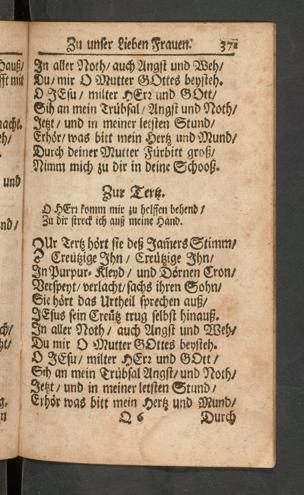 Zu unser Lieben Frauen. 371
In aller Noth / auch Angst und Weh /
Du / mir O Mutter GOttes beysteh.
O JEsu / milter HErz und GOtt /
Sih an mein Trübsal / Angst und Noth /
Jetzt / und in meiner letsten Stund /
Erhör / was bitt mein Hertz und Mund /
Durch deiner Mutter Fürbitt groß /
Nimm mich zu dir in deine Schooß.
Zur Tertz.
O HErr komm mir zu helffen behend /
Zu dir streck ich auß meine Händ.
ZUr Tertz hört sie deß Jam̃ers Stimm /
Creützige Ihn / Creützige Ihn /
In Purpur-Kleyd / und Dörnen Cron /
Verspeyt / verlacht / sachs ihren Sohn /
Sie hört das Urtheil sprechen auß /
JEsus sein Creütz trug selbst hinauß.
In aller Noth / auch Angst und Weh /
Du mir O Mutter GOttes beysteh.
O JEsu / milter HErz und GOtt /
Sih an mein Trübsal / Angst und Noth /
Jetzt / und in meiner letsten Stund /
Erhör was bitt mein Hertz und Mund /
Q 6 Durch